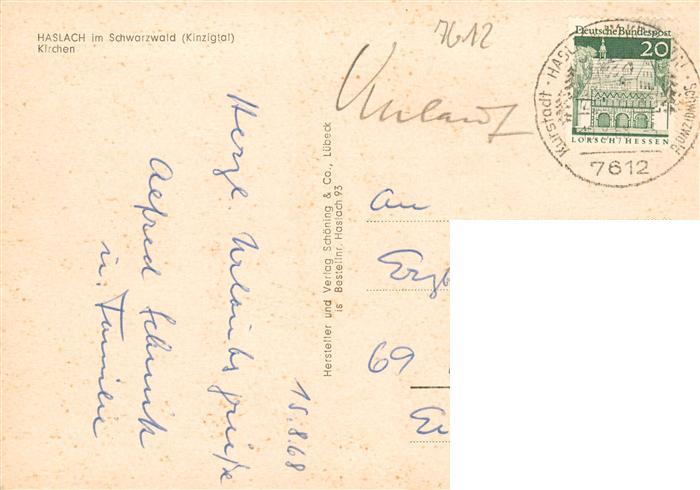 HASLACH im Schwarzwald (Kinzigtal)
Kirchen
7612
Urlaub
Deutsche Bundespost
20
LORSCH/HESSEN
Kurstadt · HASLACH
7612
15.8.68
Herzl. Urlaubsgrüße
Alfred
u. Familie
Hersteller und Verlag Schöning & Co., Lübeck
is Bestellnr. Haslach 93
An
69